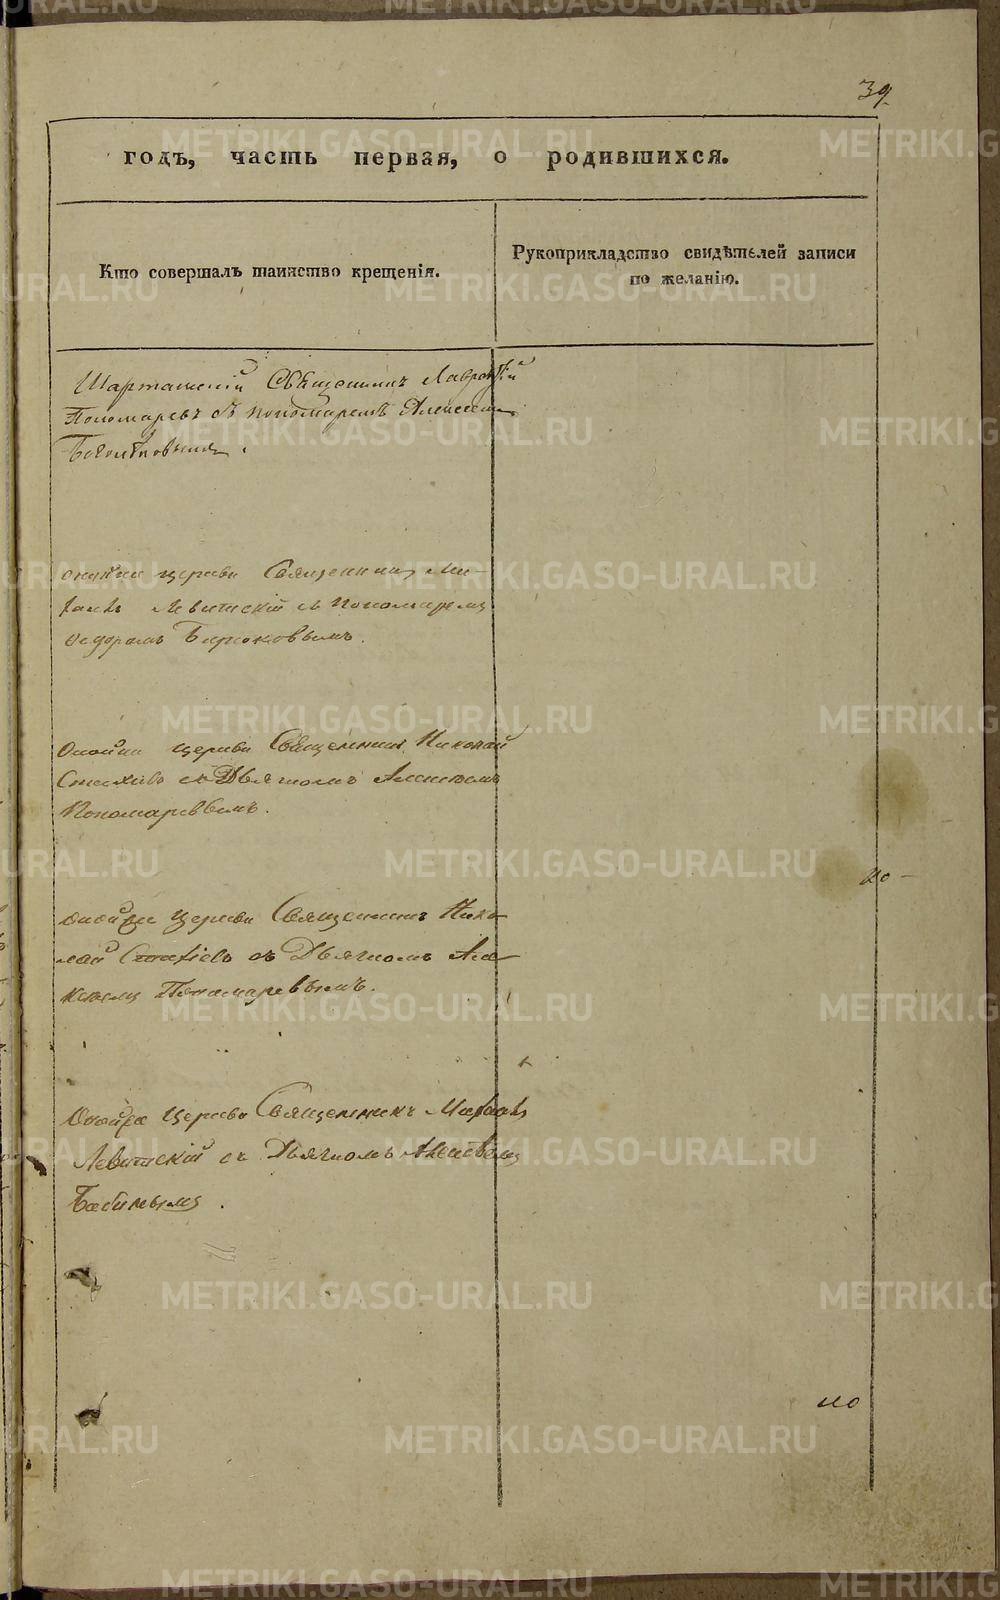 39.
годъ, часть первая, о родившихся.
Кто совершалъ таинство крещенія.
Рукоприкладство свидѣтелей записи
по желанію.
Священникъ Лаврентій
Пономаревъ съ пономаремъ Алексеемъ
церкви Священникъ Ми-
хаилъ Левитскій съ Пономаремъ
Ѳедоромъ Бирюковымъ.
Оной же церкви Священник Николай
съ Дьячкомъ Алексеемъ
Пономаревымъ.
оной же церкви Священникъ Нико-
лай съ Дьячкомъ Але-
ксеем Пономаревымъ.
Оной же церкви Священникъ Михаилъ
Левитскій съ Дьячкомъ Алексеем
Бабиным.
METRIKI.GASO-URAL.RU